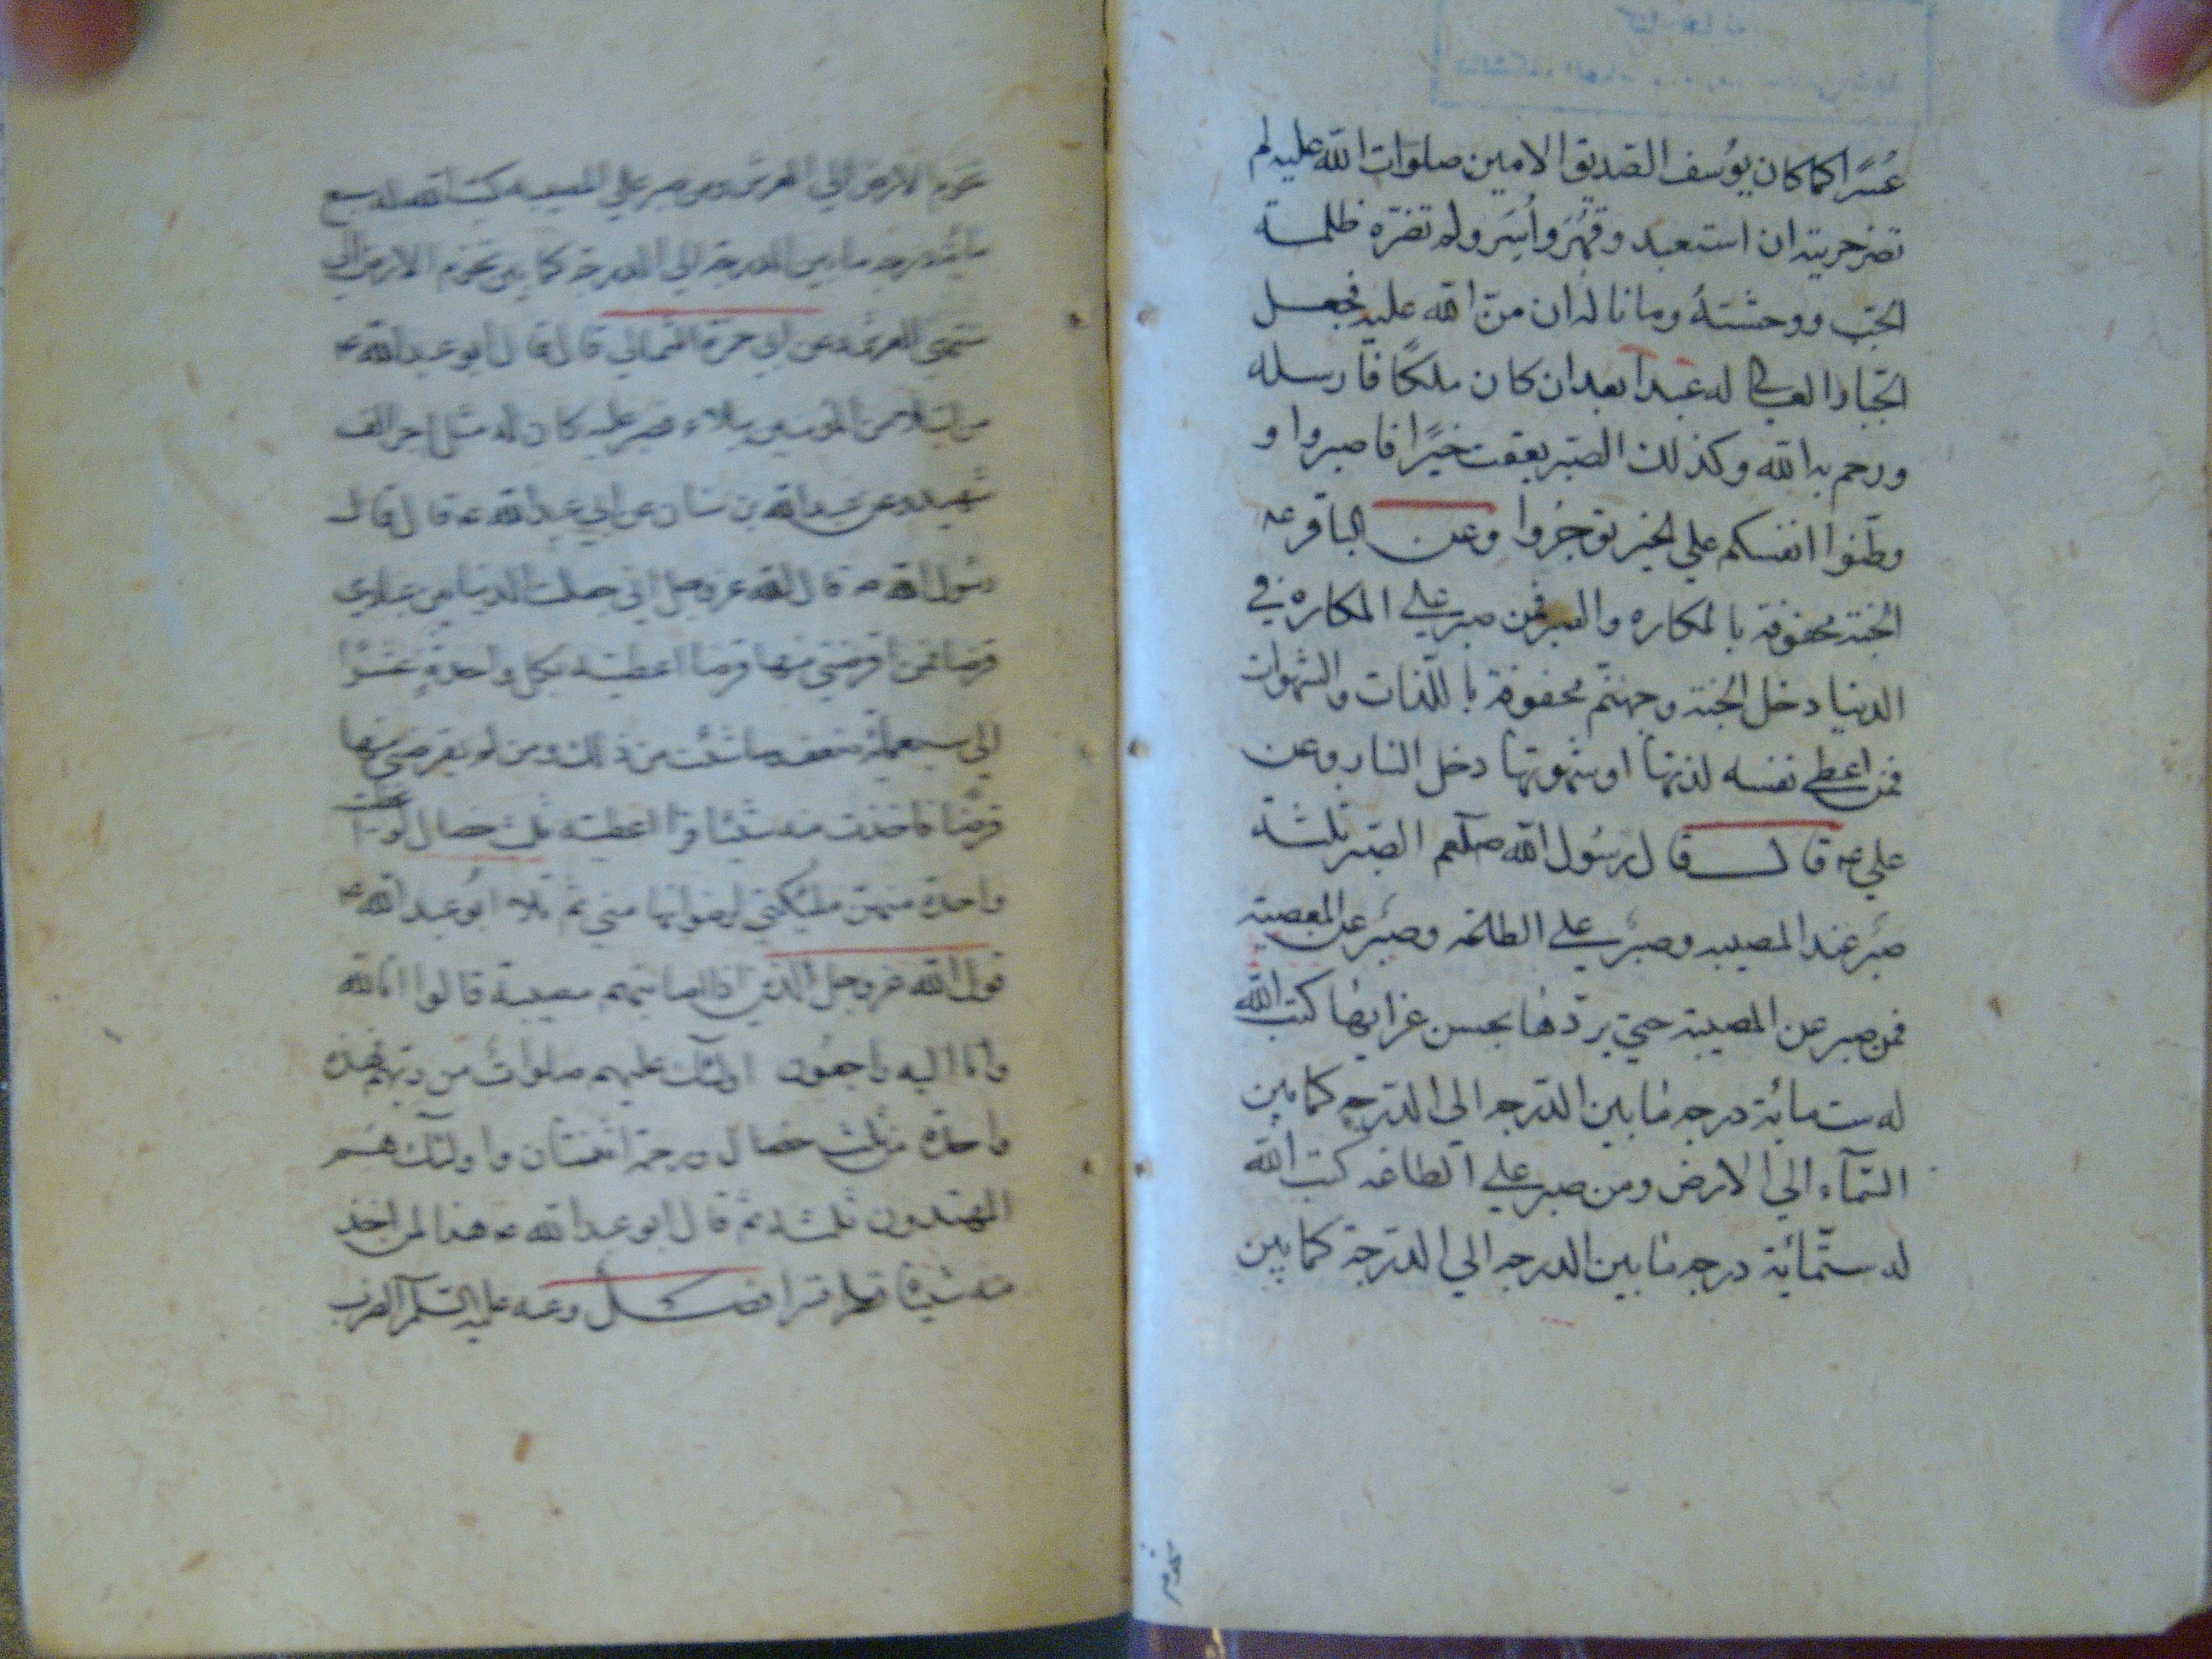 عُسرًا كما كان يوُسف الصّديق الامين صلوات الله عليه لم
تضر حريته ان استعبد وقُهِرَ واُسِرَ ولم تضرّه ظلمة
الجبّ ووحشتهُ وما ناله ان منّ الله عليه فجعل
الجبّار العاتي له عبداً بعد ان كان ملكًا فارسله
ورحم به الله وكذلك الصّبر يعقب خيرًا فاصبروا و
وطّنوا انفسكم علي الخير توجروا وعن الباقر عه
الجنة محفوفة بالمكاره والصبر فمن صبر علي المكاره في
الدنيا دخل الجنة وجهنّم محفوفة باللّذات والشهوات
فمن اعطي نفسه لذتها او شهوتها دخل النار وعن
علي عه قال قال رسُول الله صلعم الصّبر ثلثة
صبرٌ عند المصيبه وصبرٌ علي الطاعة وصبرٌ عن المعصية
فمن صبر عن المصيبة حتي يردّها بحسن عزايها كتب الله
له ستمائة درجه ما بين الدّرجه الي الدّرجه كما بين
السّمآء الي الارض ومن صبر علي الطاعه كتب الله
له ستّمائة درجه ما بين الدرجه الي الدّرجة كما بين
تخوم الارض الي العرش ومن صبر علي المصيبه كتب الله له سبع
مائة درجه ما بين الدرجة الي الدرجة كما بين تخوم الارض الي
منتهي العرش وعن ابي حمزة الثمالي قال قال ابو عبد الله عه
من ابتلا من المؤمنين ببلاء فصبر عليه كان له مثل اجر الف
شهيد وعن عبد الله بن سنان عن ابي عبد الله عه قال قال
رسُول الله صه قال الله عزوجل اني جعلت الدنيا بين عبادي
قرضا فمن اقرضني منها قرضا اعطيته بكل واحدةٍ عشرًا
الي سبعمائة ضعف وما شئت من ذلك ومن لم يقرضني منها
قرضًا فاخذت منه شيئا قسرا اعطيته ثلث خصال لو
واحدة منهن ملئكتي لرضوا بها مني ثم تلا ابُو عبد الله عه
قول الله عزوجل الذين اذا اصابتهم مصيبة قالوا انا لله
وانا اليه راجعُون اولئك عليهم صلوات من ربهم فهذه
واحدة من ثلث خصال ورحمة اثنتان واولئك هم
المهتدون ثلثة ثم قال ابو عبد الله عه هذا لمن اخذ
منه شيئا قسرا فصل وعنه عليه السلم الصبر